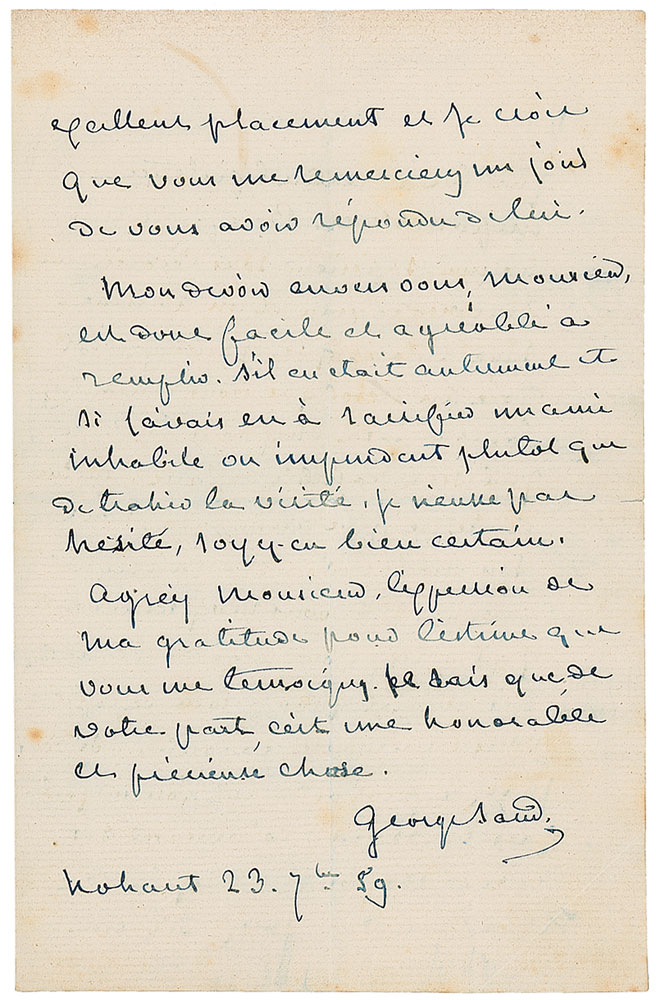 excellent placement et je crois
que vous me remercierez un jour
de vous avoir répondu de lui.
Mon devoir envers vous, Monsieur,
est donc facile et agréable à
remplir. S'il en était autrement et
si j'avais eu à sacrifier un ami
inhabile ou imprudent plutot que
de trahir la vérité, je n'eusse pas
hésité, soyez-en bien certain.
Agréez Monsieur, l'expression de
ma gratitude pour l'estime que
vous me temoignez. Je sais que de
votre part, c'est une honorable
et précieuse chose.
George Sand.
Nohant 23. 7bre 59.